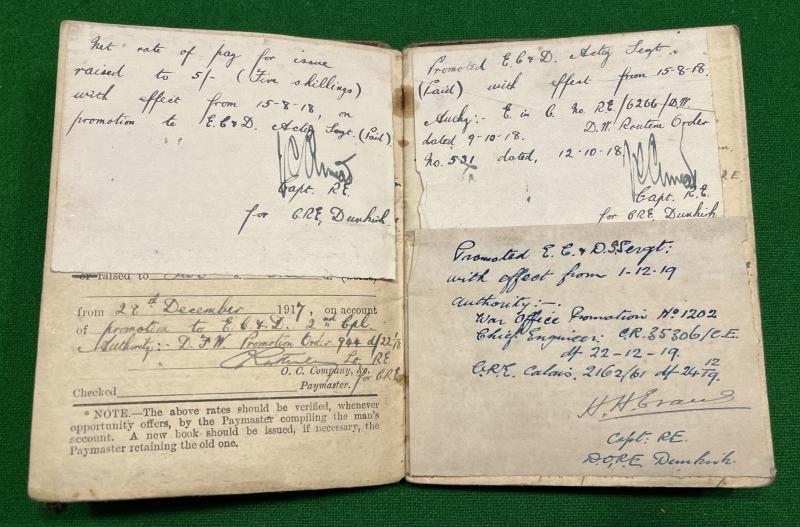 Net rate of pay for issue
raised to 5/- (Five shillings)
with effect from 15-8-18, on
promotion to E.C & D. Actg Sergt. (Paid)
Capt. R.E.
for C.R.E, Dunkirk
or raised to
from 28th December 1917, on account
of promotion to E.C & D. 2nd Cpl.
Authority:- D.F.W Promotion Order 944 d/22/1/18
Lt. R.E.
O. C. Company, &c.
for C.R.E
Checked Paymaster.
* NOTE.—The above rates should be verified, whenever
opportunity offers, by the Paymaster compiling the man's
account. A new book should be issued, if necessary, the
Paymaster retaining the old one.
Promoted E.C & D. Actg Sergt.
(Paid) with effect from 15-8-18.
Authy:- E. in C. No. R.E./6266/D.W.
dated 9-10-18. D.W. Routine Order
No. 531 dated, 12-10-18.
Capt. R.E.
for C.R.E, Dunkirk
R.E.
Promoted E. C. & D. Sergt:
with effect from 1-12-19
Authority:-.
War Office Promotion No 1202
Chief Engineer: C.R. 35306/C.E.
df 22-12-19.
C.R.E. Calais. 2162/61 df 24/12/19.
H. H. Evans
Capt: R.E.
D.O,R.E. Dunkirk.